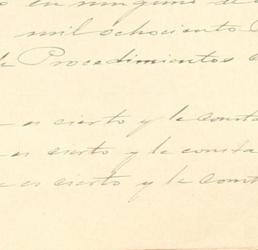 en ninguno de
mil ochociento
de Procedimientos
es cierto y le consta
es cierto y le consta
es cierto y le const